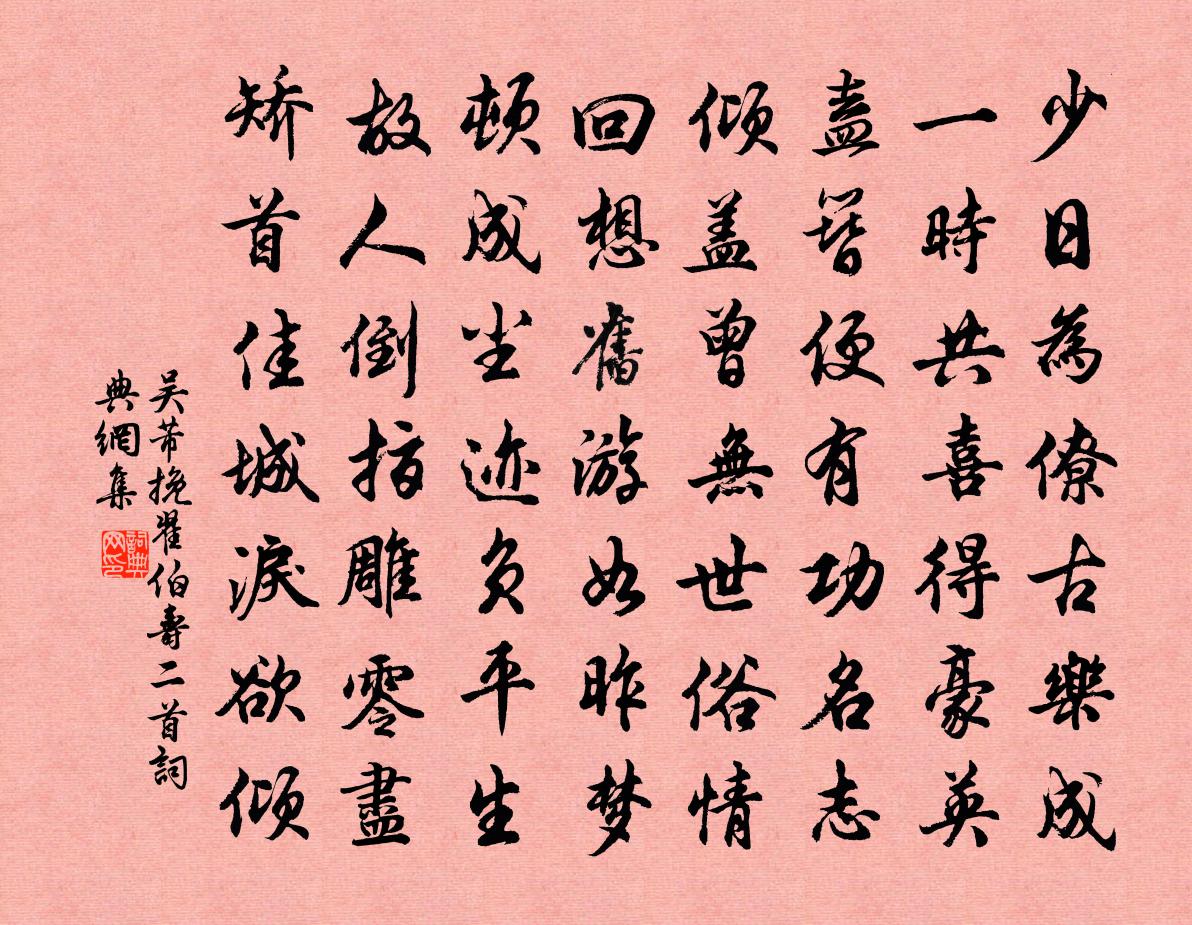 少日為僚古樂成
一時共喜得豪英
盍簪便有功名志
傾盖曾無世俗情
回想舊游如昨梦
頓成尘迹负平生
故人倒指雕零盡
矫首佳城淚欲傾
吴芾挽翟伯壽二首詞
典網集
詞典
网印